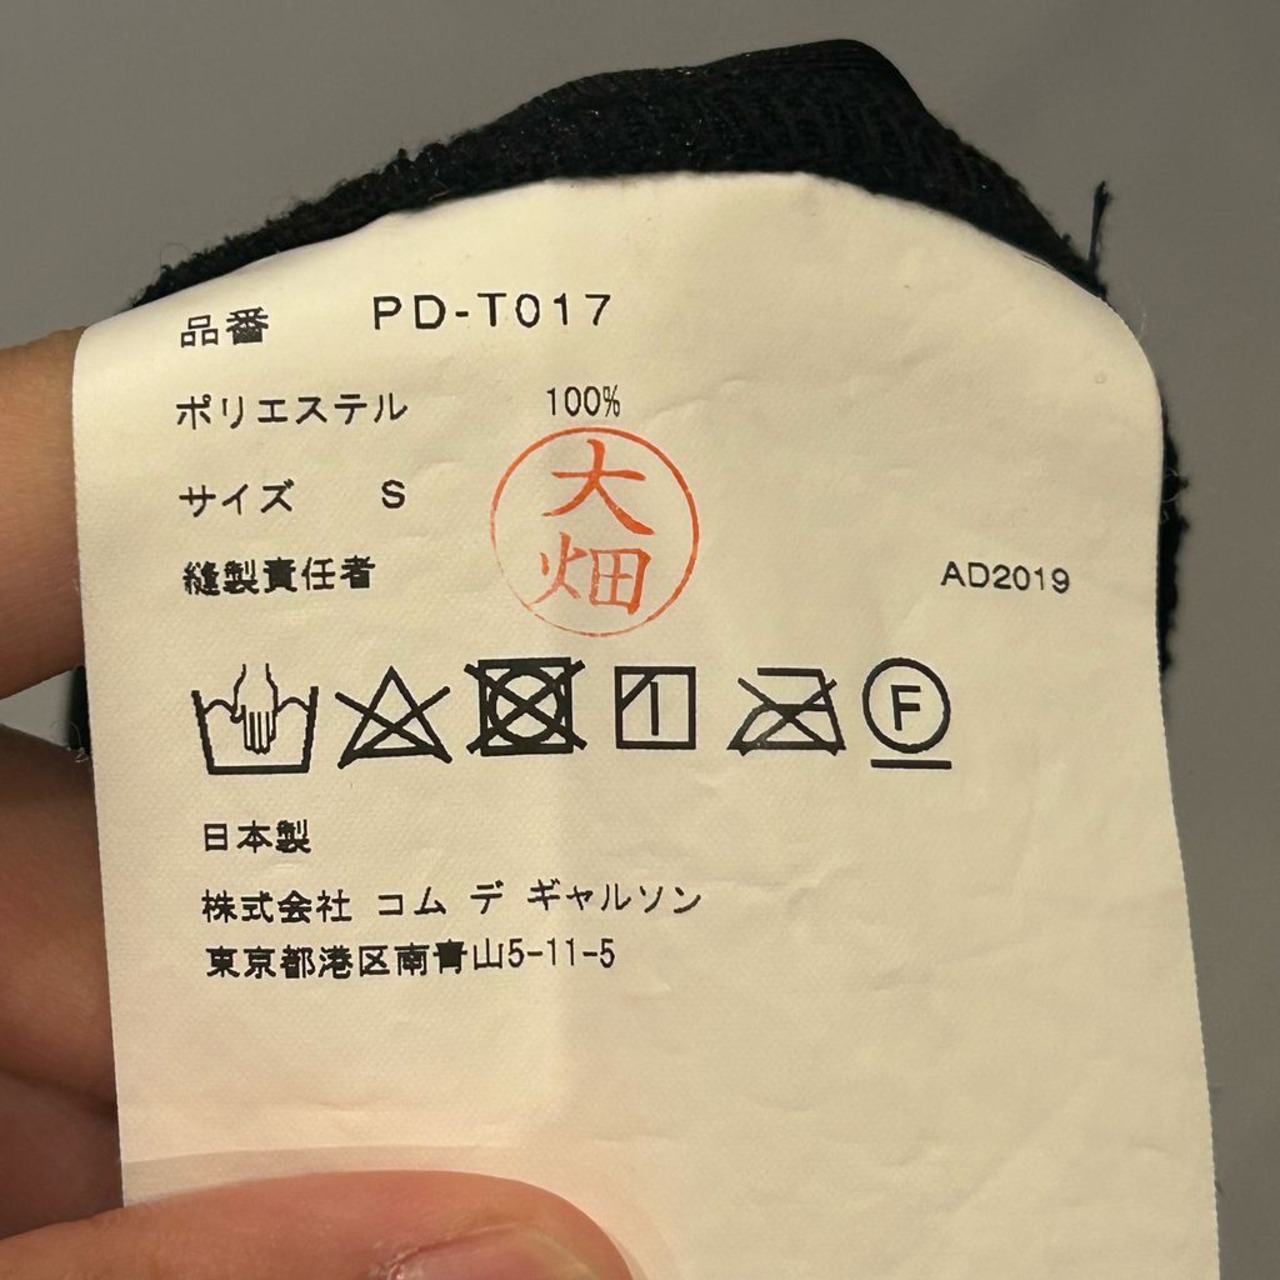 品番 PD-T017
ポリエステル 100%
サイズ S
縫製責任者 大畑 AD2019
F
日本製
株式会社 コム デ ギャルソン
東京都港区南青山5-11-5